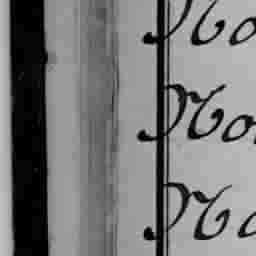 No
No
No